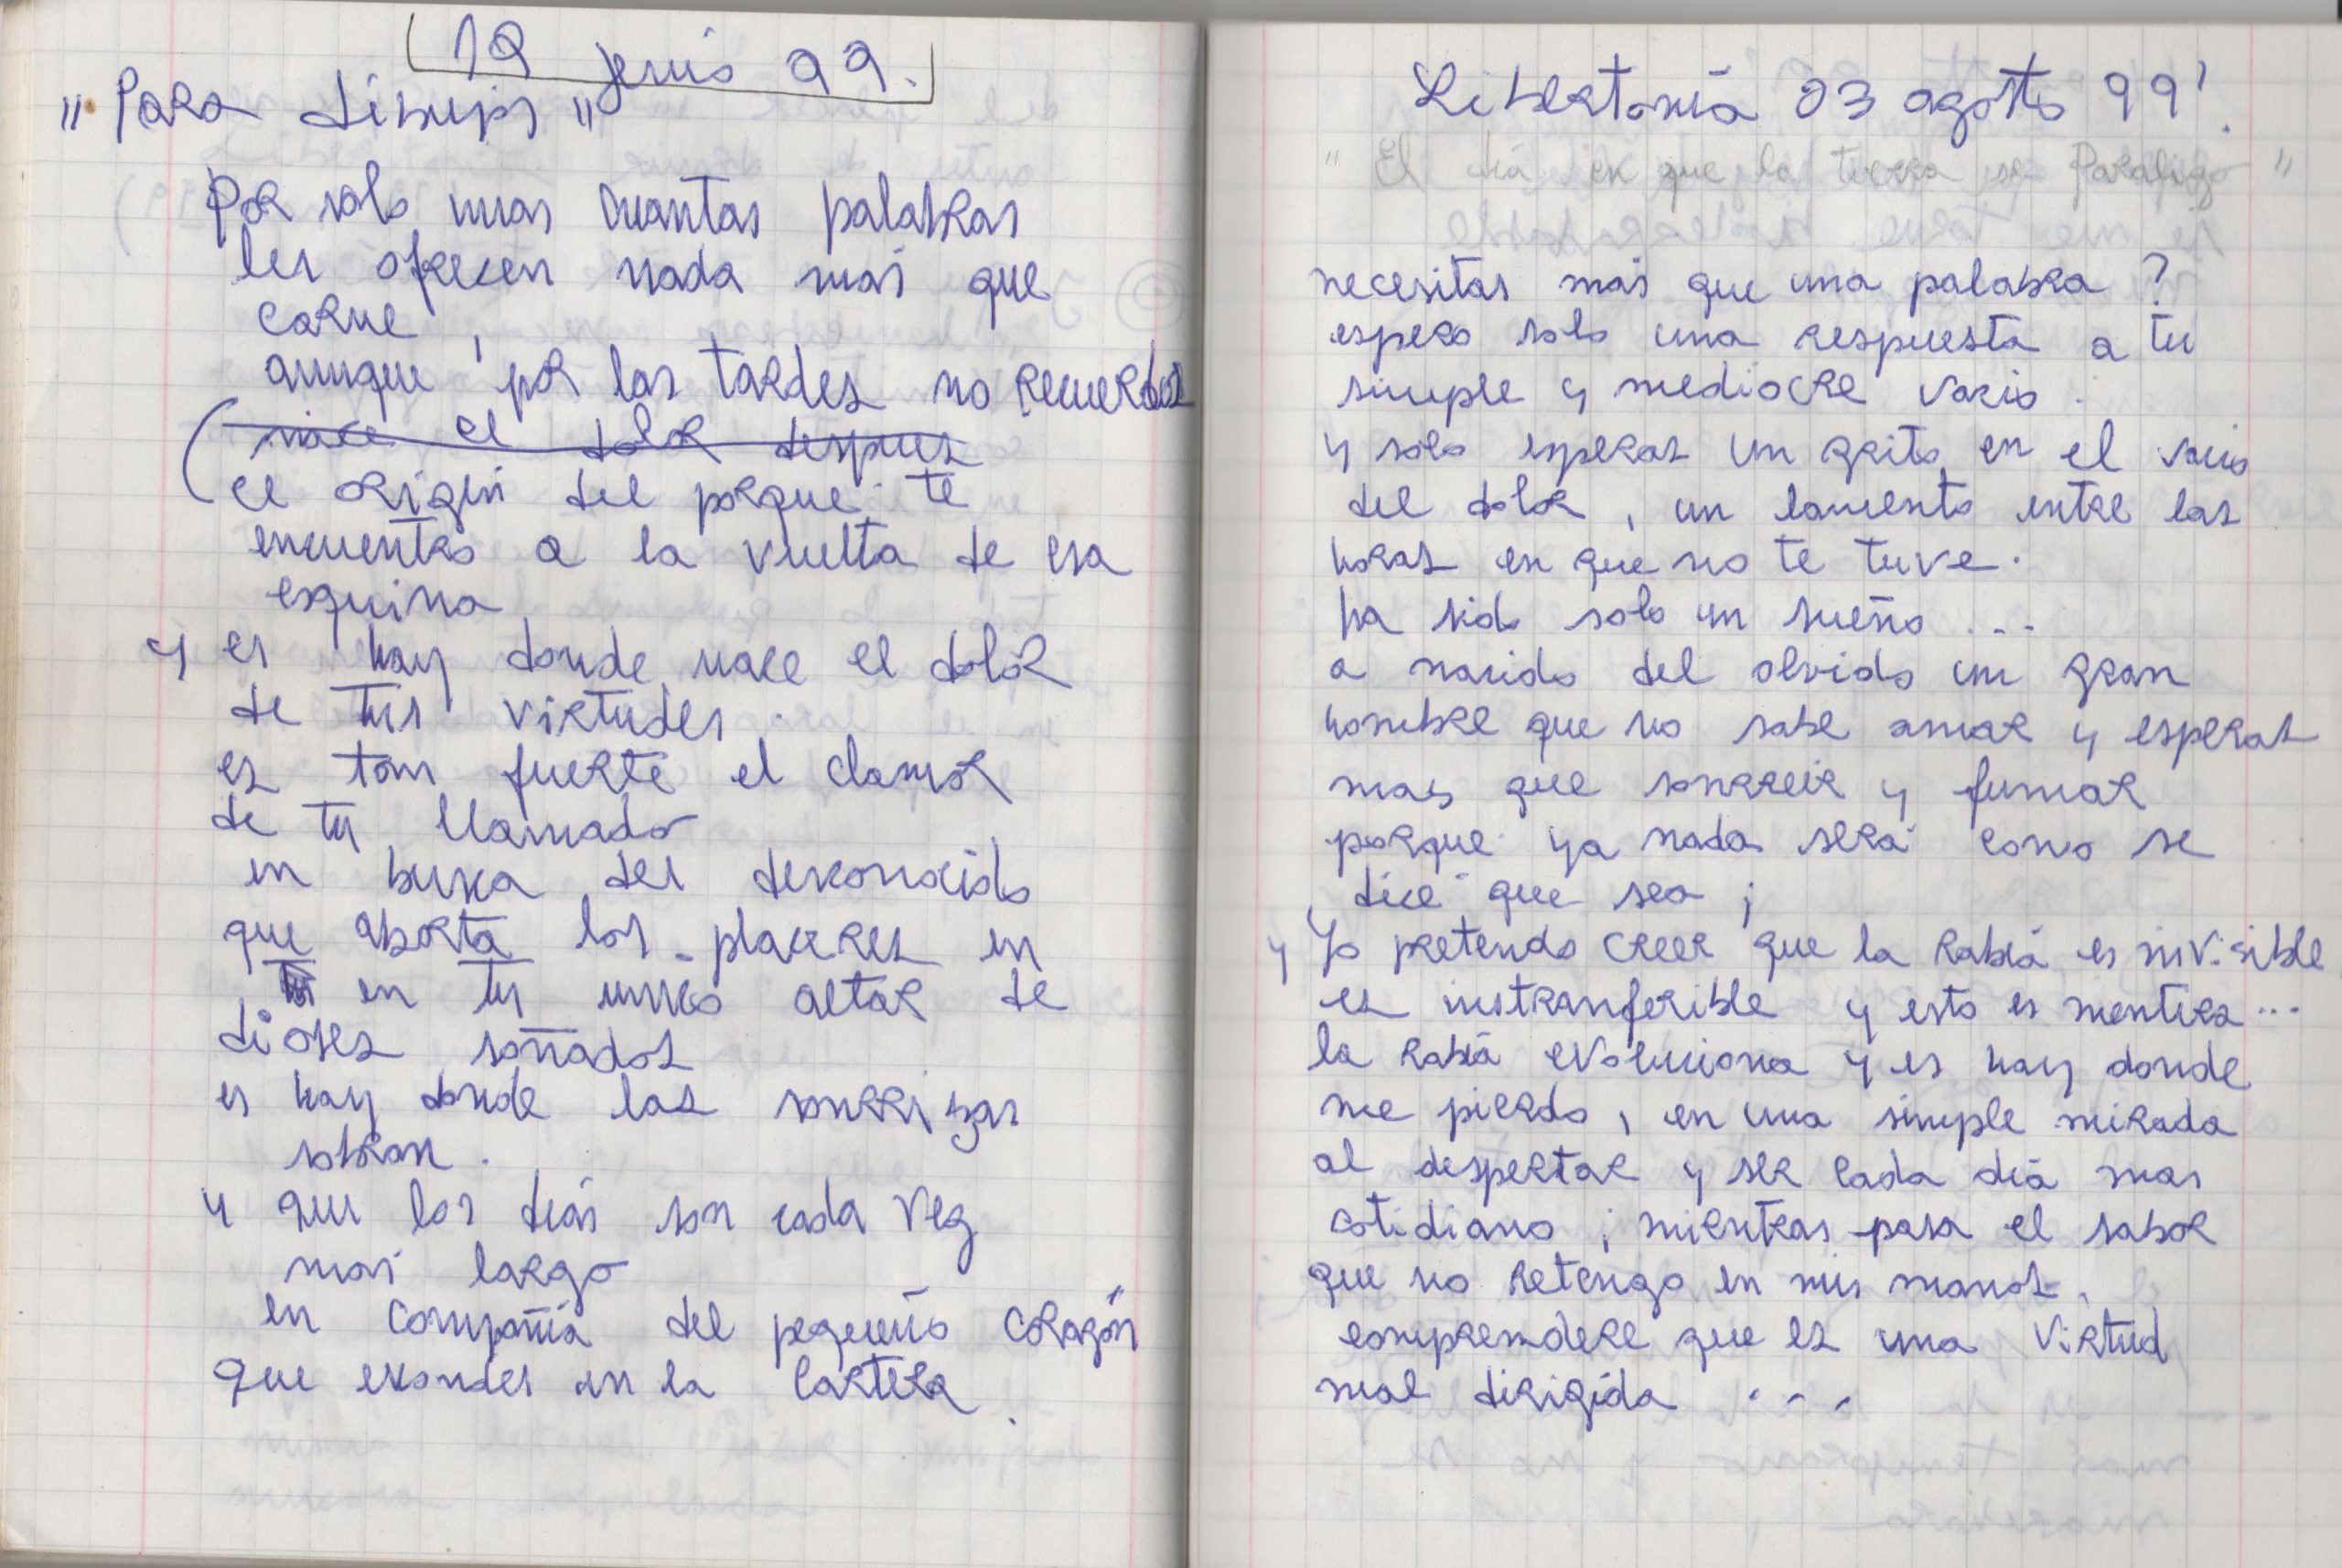 19 junio 99.
"Para dibujos"
Por solo unas cuantas palabras
les ofrecen nada más que
carne,
aunque por las tardes no recuerdos
(nace el dolor despues
el origen del porque te
encuentro a la vuelta de esa
esquina
y es hay donde nace el dolor
de tus virtudes.
es tan fuerte el clamor
de tu llamado
en busca del desconocido
que aborta los placeres en
en tu unico altar de
dioses soñados
es hay donde las sonrrizas
sobran.
y que los días son cada vez
más largo
en compañia del pequeño corazón
que escondes en la cartera.
Libertonia 03 agosto 99'.
"El día en que la tierra se Paralizo"
necesitas más que una palabra?
espero solo una respuesta a tu
simple y mediocre vacio.
y solo esperas un grito en el vacio
del dolor, un lamento entre las
horas en que no te tuve.
ha sido solo un sueño ...
a nacido del olvido un gran
hombre que no sabe amar y esperas
mas que sonrreir y fumar
porque ya nada será como se
dice que sea ¡
y Yo pretendo creer que la rabia es invisible
es instranferible y esto es mentira...
la rabia evoluciona y es hay donde
me pierdo, en una simple mirada
al despertar y ser cada día mas
cotidiano ¡ mientras pasa el sabor
que no retengo en mis manos.
comprendere que es una virtud
mal dirigida ...